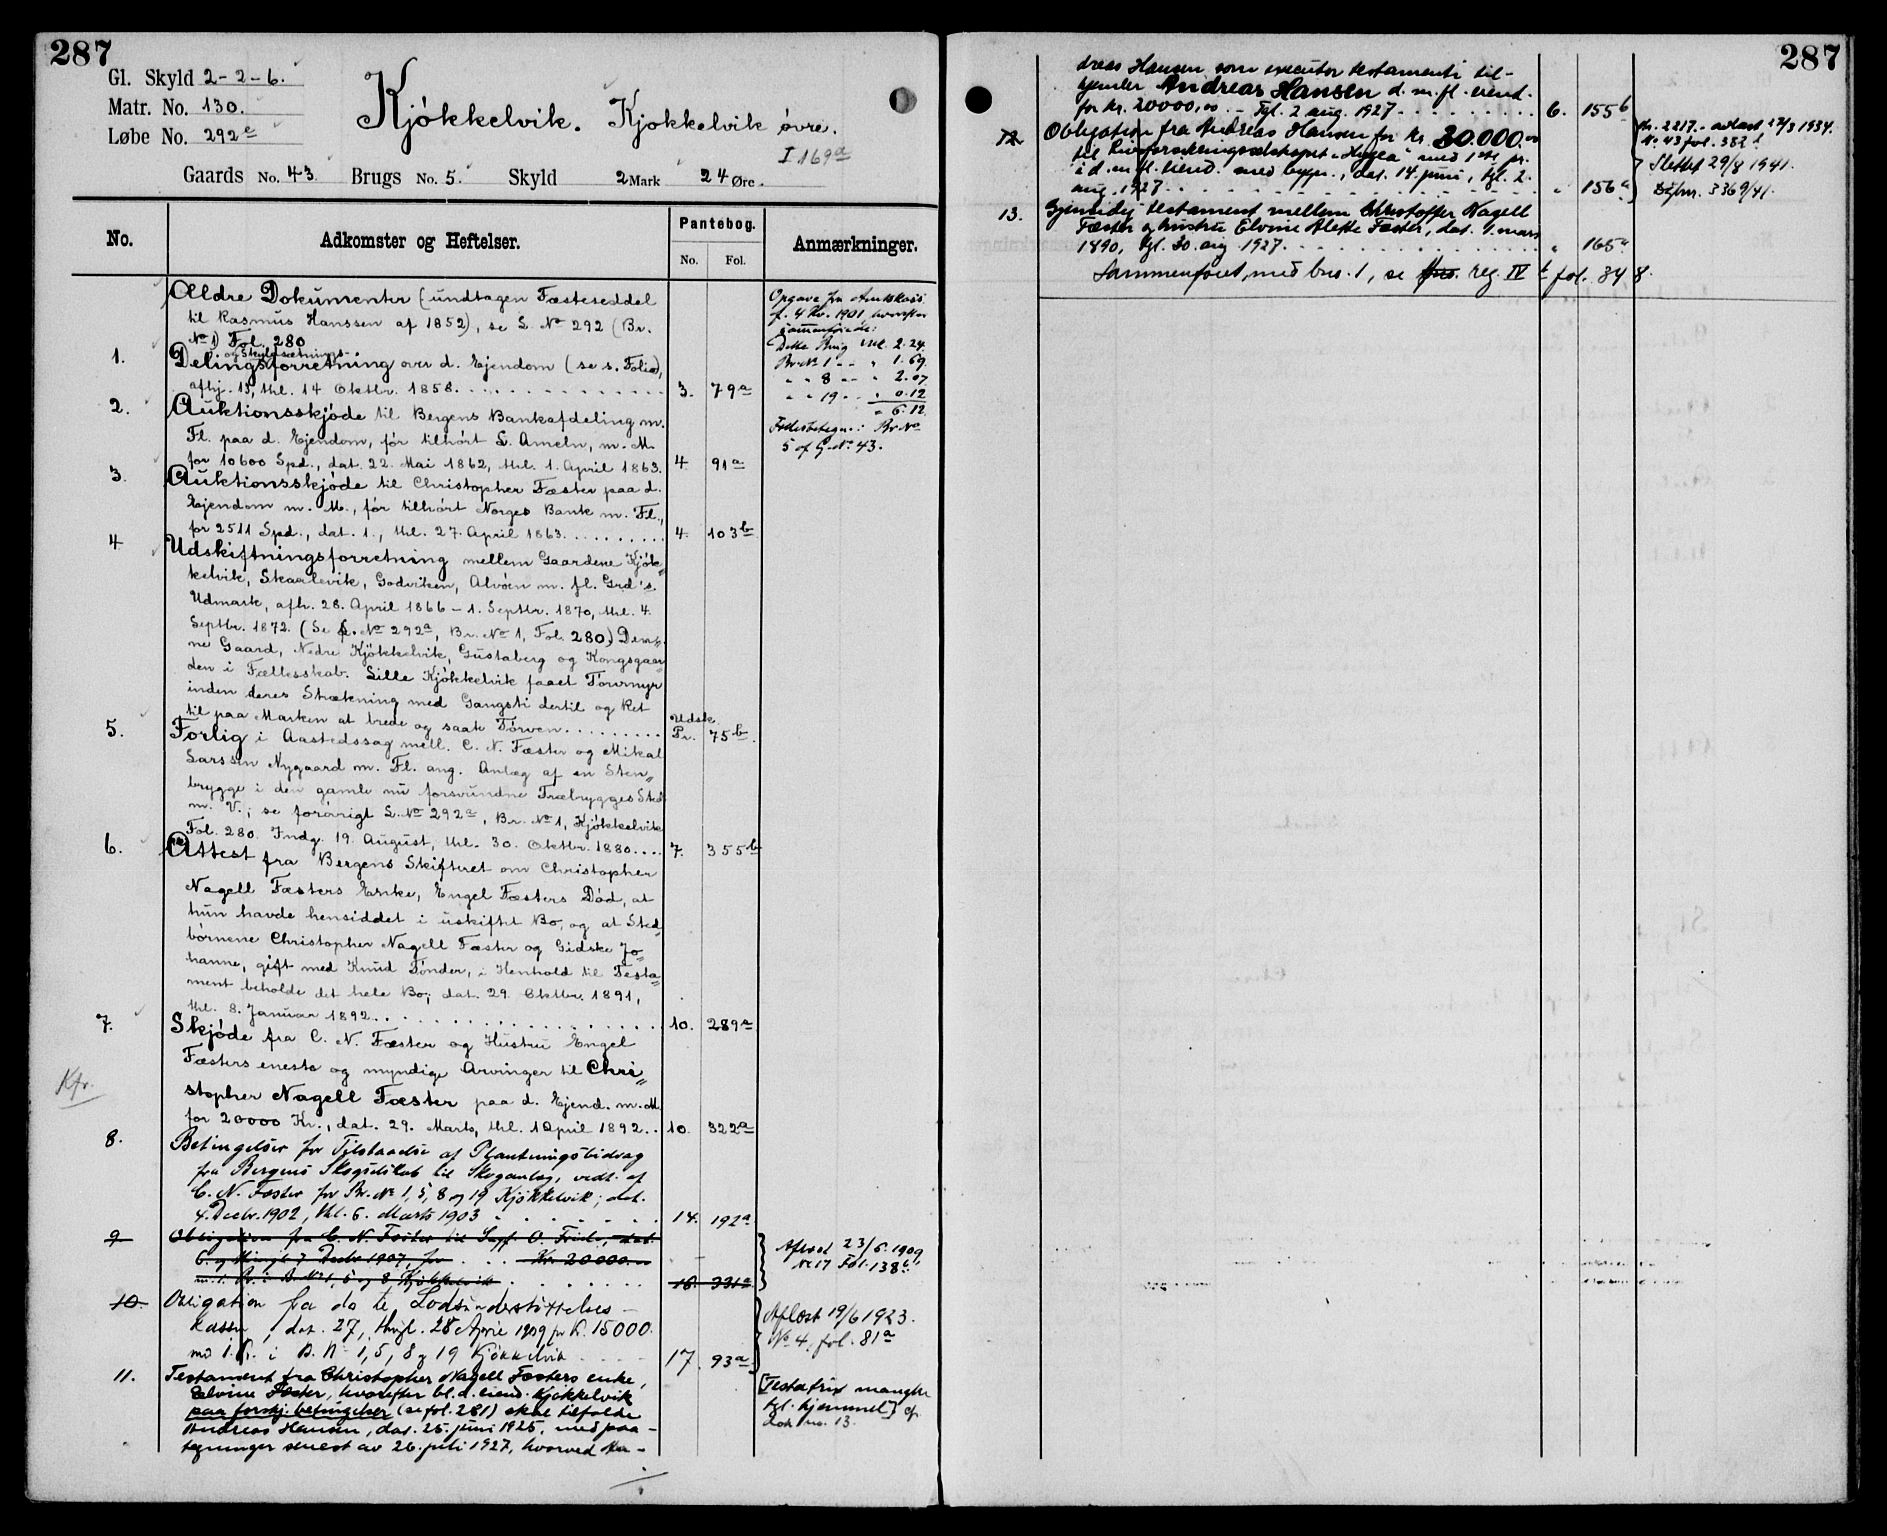 287
Gl. Skyld 2-2-6.
Matr. No. 130.
Løbe No. 292e
Kjøkkelvik. Kjøkkelvik øvre.
I 169a
Gaards No. 43. Brugs No. 5. Skyld 2 Mark 24 Øre.
No. Adkomster og Heftelser. Pantebog. No. Fol. Anmærkninger.
Ældre Dokumenter (undtagen Fæsteseddel
til Rasmus Hanssen af 1852), se L. No 292 (Br.
No 1) Fol. 280
og Skyldsætnings-
1. Delingsforretning over d. Ejendom (se s. Folio),
afhj. 13, thl. 14 Oktbr. 1858. 3. 79a
2. Auktionsskjøde til Bergens Bankafdeling m.
Fl. paa d. Ejendom, før tilhørt L. Ameln, m. M.
for 10600 Spd., dat. 22. Mai 1862, thl. 1. April 1863. 4. 91a
3. Auktionsskjøde til Christopher Fæster paa d.
Ejendom m. M., før tilhørt Norges Bank m. Fl.,
for 2511 Spd., dat. 1., thl. 27. April 1863. 4. 103b
4. Udskiftningsforretning mellem Gaardene Kjøk„
kelvik, Skaalevik, Godviken, Alvøen m. fl. Grd's.
Udmark, afh. 28. April 1866 – 1. Septbr. 1870, thl. 4.
Septbr. 1872. (Se L. No 292a, Br. No 1, Fol. 280.) Den„
ne Gaard, Nedre Kjøkkelvik, Gustaberg og Kongsgaar„
den i Fællesskab. Lille Kjøkkelvik faaet Torvmyr
inden deres Strækning med Gangsti dertil og Ret
til paa Marken at brede og saate Torven. Udsk. Pr. 75b
5. Forlig i Aastedssag mell. C. N. Fæster og Mikal
Larssen Nygaard m. Fl. ang. Anlæg af en Sten„
brygge i den gamle nu forsvundne Træbrygges Sted
m. V.; se forøvrigt L. No 292a, Br. No 1, Kjøkkelvik
Fol. 280. Indg. 19. August, thl. 30. Oktbr. 1880. 7. 355b
6. Attest fra Bergens Skifteret om Christopher
Nagell Fæsters Enke, Engel Fæsters Død, at
hun havde hensiddet i uskiftet Bo, og at Sted„
børnene Christopher Nagell Fæster og Gidske Jo„
hanne, gift med Knud Tønder, i Henhold til Testa„
ment beholde det hele Bo; dat. 29. Oktbr. 1891,
thl. 8. Januar 1892. 10. 289a
7. Skjøde fra C. N. Fæster og Hustru Engel
Fæsters eneste og myndige Arvinger til Chri„
stopher Nagell Fæster paa d. Ejend. m. M.
for 20000 Kr., dat. 29. Marts, thl. 1 April 1892. 10. 322a
Kfr.
8. Betingelser for Tilstaaelse af Plantningsbidrag
fra Bergens Skogselskab til Skoganlæg, vedt. af
C. N. Fæster for Br. No 1, 5, 8 og 19 Kjøkkelvik; dat.
4. Decbr. 1902, thl. 6. Marts 1903 14. 192a
9. Obligation fra C. N. Fæster til O. dat.
6. og thingl. 7 Decbr 1907, for Kr. 20000.
m. 1. Pr. i B. No 1, 5 og 8 Kjøkkelvik 16. 331a
10. Obligation fra do til Lodsunderstøttelses-
kassen, dat. 27, thngl. 28 April 1909 for Kr. 15000.
med 1. Pr. i B. N 1, 5, 8 og 19 Kjøkkelvik 17. 93a
11. Testament fra Christopher Nagell Fæsters enke,
Elvine Fæster, hvorefter bl. a. eiend. Kjøkkelvik
paa forskj. betingelser (se fol. 281) skal tilfalde
Andreas Hansen, dat. 25. juni 1925, med paa-
tegninger senest av 26. juli 1927, hvorved An-
Opgave fra Amtskass.
f. 4 Kv. 1901, hvorefter
sammenføiede:
Dette Brug Mk. 2.24.
Br. No 1 „ 1.69.
„ „ 8 „ 2.07
„ „ 19 „ 0.12
„ 6.12.
Fællesbetegn.: Br. No
5 af G. No 43.
Aflæst 23/6. 1909
No 17 Fol. 138b.
Aflæst 19/6 1923.
No 4, fol. 81a
[Testatrix mangler
tgl. hjemmel] cfr.
dok. no. 13.
287
dreas Hansen som executor testamenti til-
hjemler Andreas Hansen d. m. fl. eiend.
for kr. 20000,00. – Tgl. 2 aug. 1927 6. 155b
12. Obligation fra Andreas Hansen for kr. 30.000.00
til Livsforsikringsselskapet „Hygea" med 1ste pr.
i d. m. fl. eiend. med bygn., dat. 14. juni, tgl. 2.
aug. 1927 „ 156a
13. Gjensidig testament mellem Christoffer Nagell
Fæster og hustru Elvine Alette Fæster, dat. 1. mars
1890, tgl. 30. aug 1927. „ 165a
Sammenføiet med bno. 1, se bno. reg. IV t fol. 348.
Nr. 2217. – avlæst 27/3 1934.
No 43 fol. 382a
Slettet 29/8 1941.
Dgbnr. 3369/41.